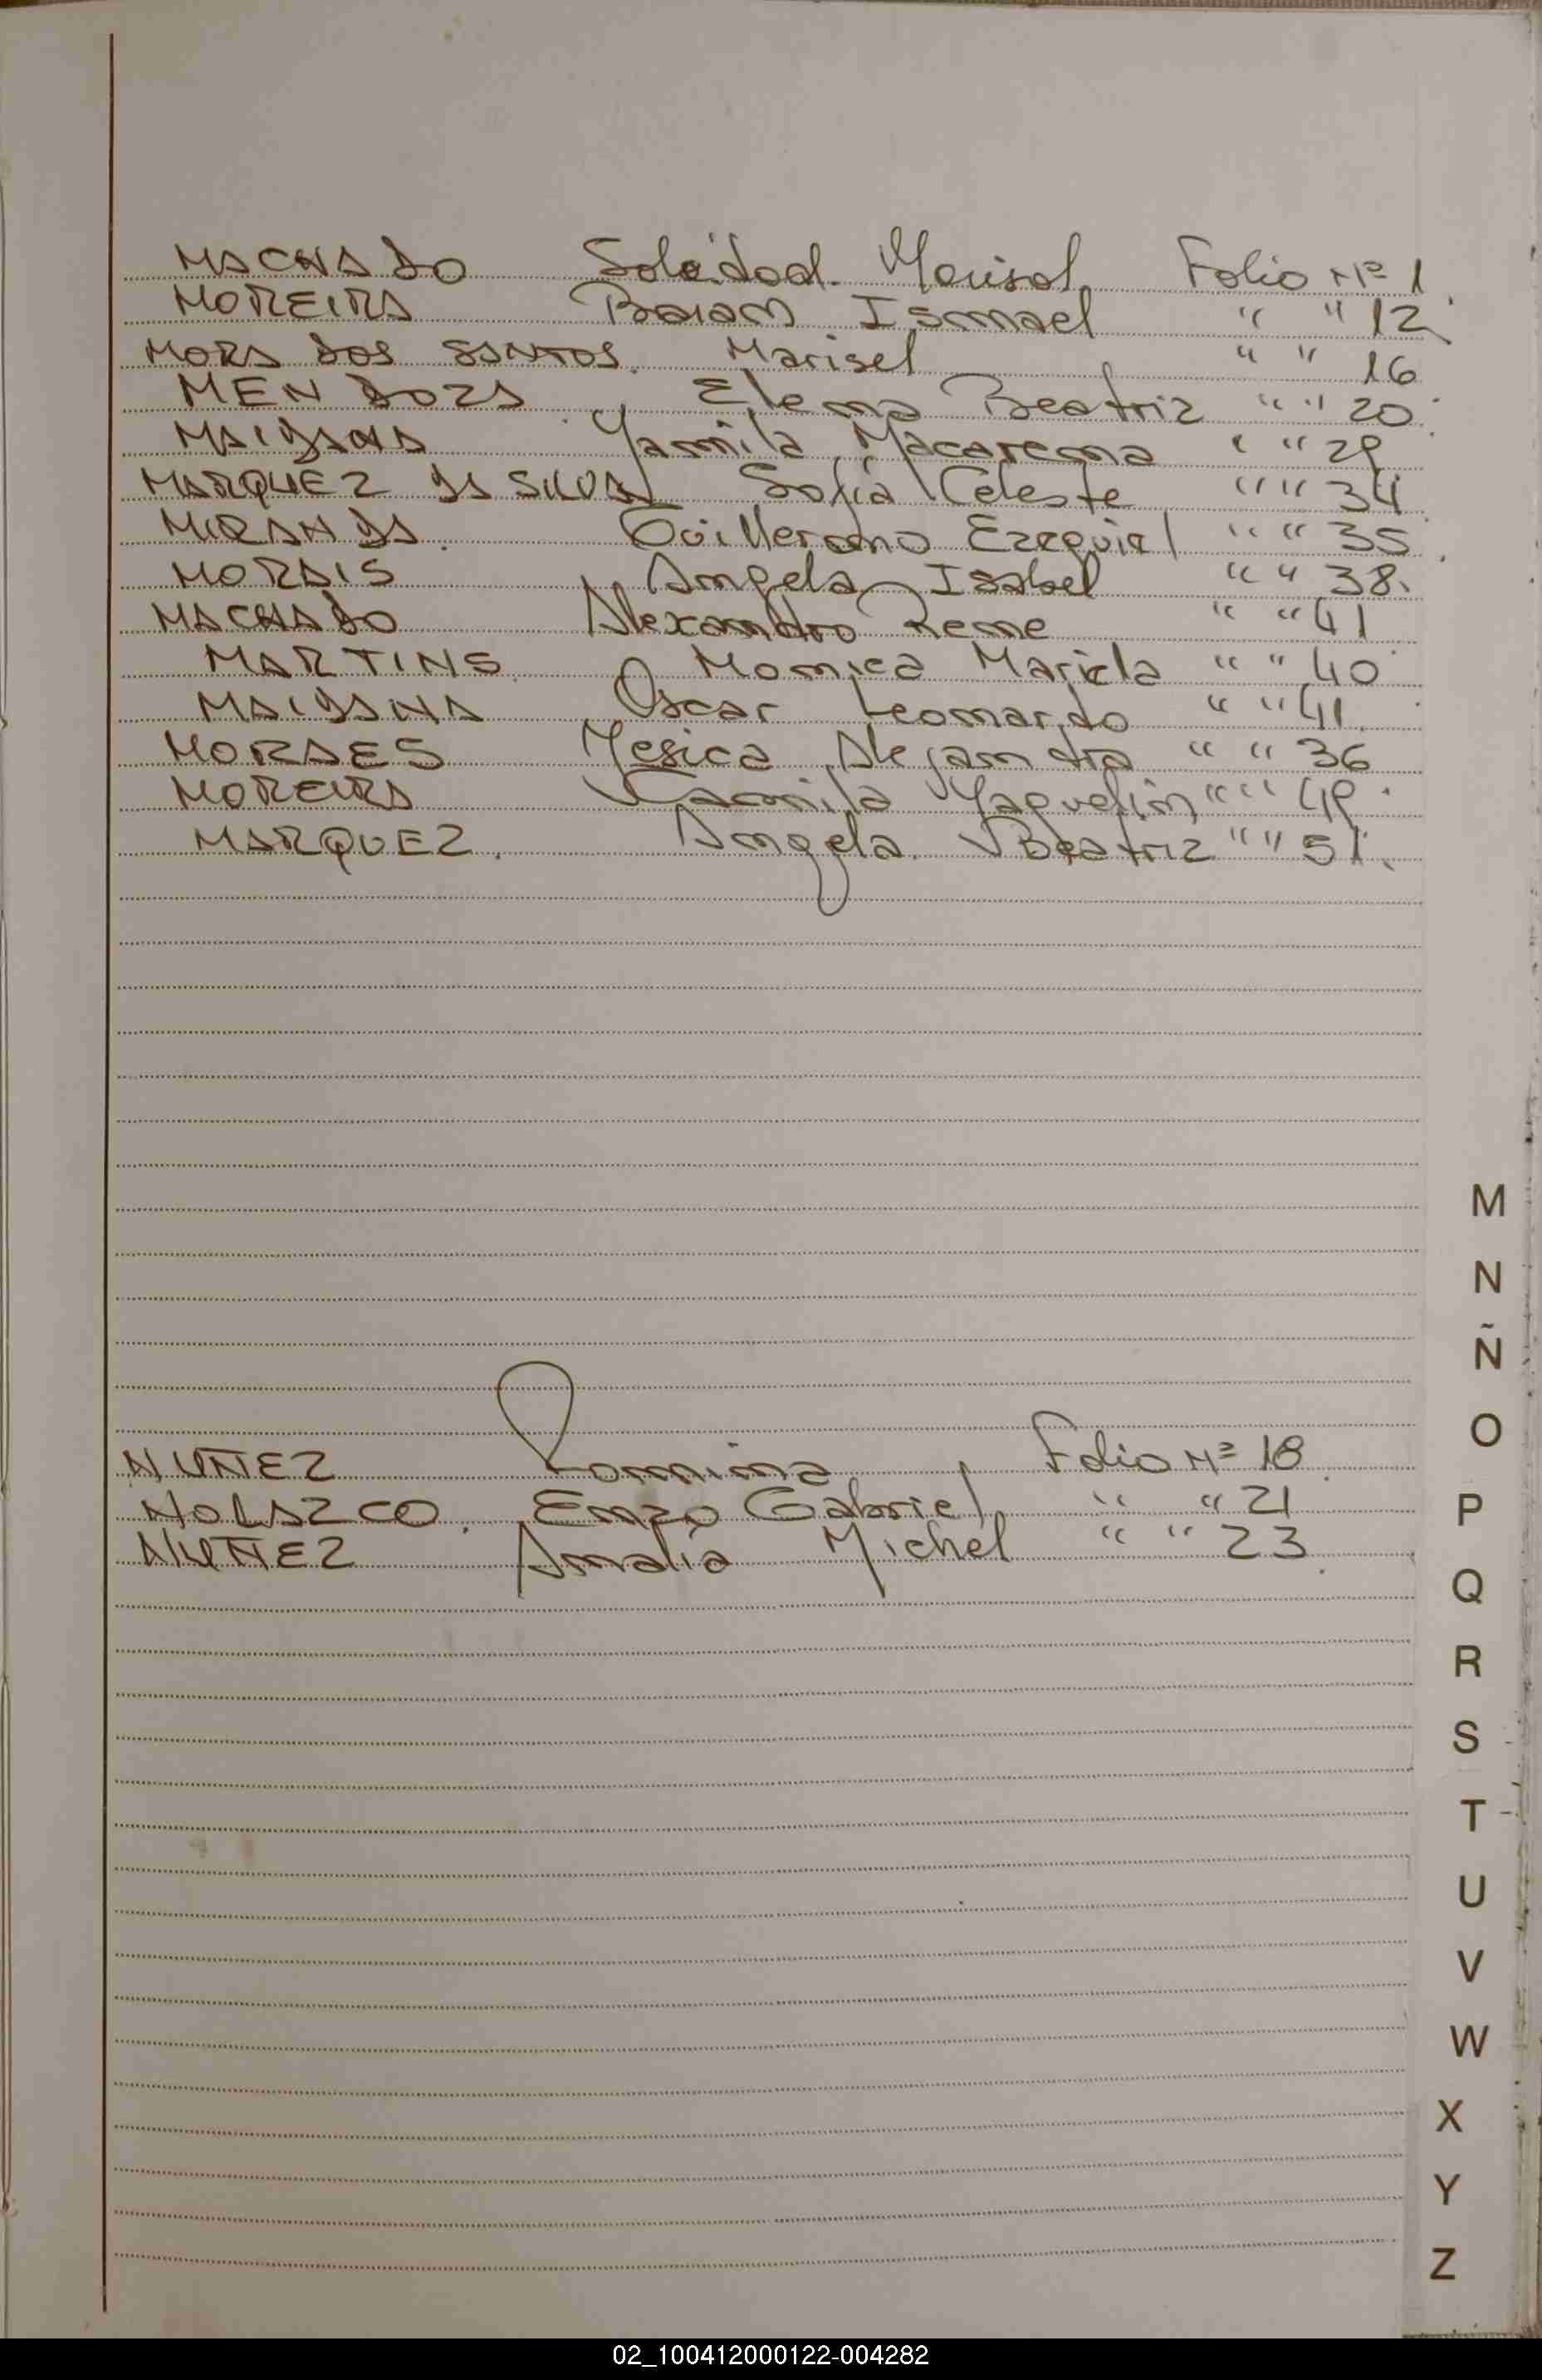 MACHADO Soledad Marisol Folio Nº 1
MOREIRA Braian Ismael " " 12
MORA DOS SANTOS Marisel " " 16
MENDOZA Elena Beatriz " " 20
MAIDANA Yamila Macarena " " 29
MARQUEZ DA SILVA Sofia Celeste " " 34
MIRANDA Guillermo Ezequiel " " 35
MORAIS Angela Isabel " " 38.
MACHADO Alexandro Rene " " 41
MARTINS Monica Mariela " " 40
MAIDANA Oscar Leonardo " " 41
MORAES Yesica Alejandra " " 36
MOREIRA Camila Yaquelin " " 49.
MARQUEZ. Angela Beatriz " " 51.
NUÑEZ Romina Folio Nº 18
NOLAZCO. Enzo Gabriel " " 21
NUÑEZ Amalia Michel " " 23.
M
N
Ñ
O
P
Q
R
S
T
U
V
W
X
Y
Z
02_100412000122-004282